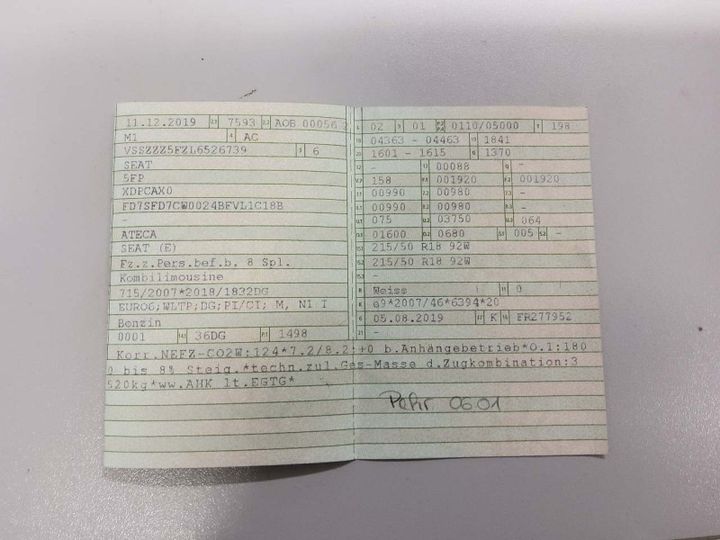 11.12.2019 7593 AOB 00056 2
M1 AC
VSSZZZ5FZL6526739 6
SEAT
5FP
XDPCAX0
FD7SFD7CW0024BFVL1C18B
-
ATECA
SEAT (E)
Fz.z.Pers.bef.b. 8 Spl.
Kombilimousine
715/2007*2018/1832DG
EURO6;WLTP;DG;PI/CI; M, N1 I
Benzin
0001 36DG 1498
02 01 0110/05000 198
04363 - 04463 1841
1601 - 1615 1370
- 00088 -
158 001920 001920
00990 00980 -
00990 00980 -
075 03750 064
01600 0680 005 -
215/50 R18 92W
215/50 R18 92W
-
Weiss 0
e9*2007/46*6394*20
05.08.2019 K FR277952
-
Korr.NEFZ-CO2W:124*7.2/8.2:+0 b.Anhängebetrieb*O.1:180
0 bis 8% Steig.*techn.zul.Ges-Masse d.Zugkombination:3
520kg*ww.AHK lt.EGTG*
0601